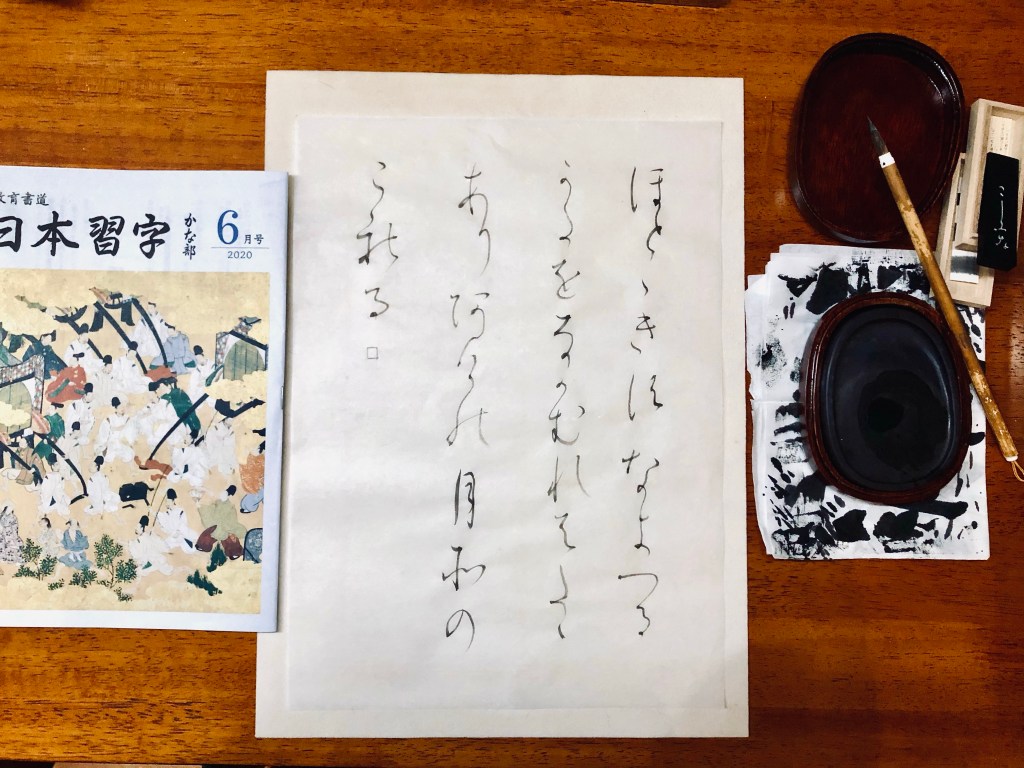 教育書道
日本習字
かな部
6月号
2020
ほとゝきすなきつる
かたをなかむれはたゝ
ありあけの月その
これる